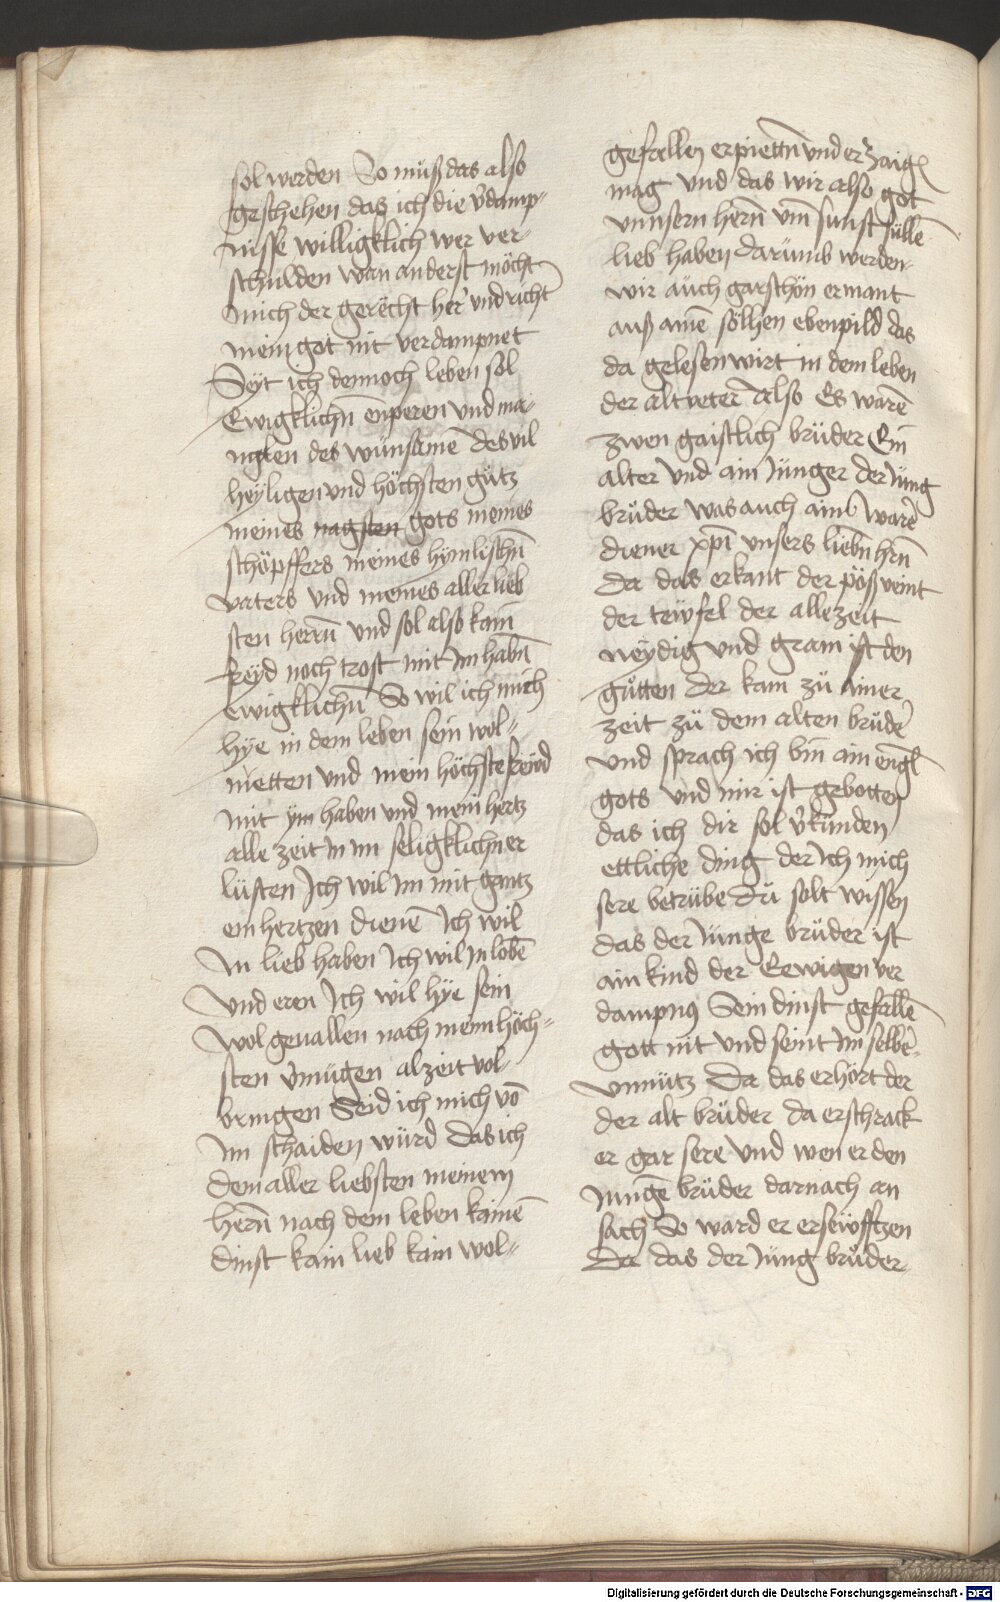 sol werden So müß das also
geschehen das ich die v̉damp-
nisse willigklich wer ver-
schulden wan anderst möcht
mich der gerëcht her̉ vnd richt
mein got nit verdampnet
Seÿt ich dennoch leben sol
Ewigklichn̄ enperen vnd ma-
nglen des wünsamē des vil
heÿligen vnd höchsten gütz
meines nagsten gots meines
schöpffers meines hÿmlischn̄
vaters vnd meines aller lieb
sten herrn̄ vnd sol also kain
freÿd noch trost mit im habn̄
ewigklichn̄ So wil ich mich
hÿe in dem leben sein wol-
nietten vnd mein höchste freÿd
mit ÿm haben vnd mein hertz
alle zeit in im seligklichn er
lüsten Ich wil im mit gantz
em hertzen dienē Ich wil
In lieb haben Ich wil in lobē
vnd eren Ich wil hÿe sein
wolgeuallen nach meim höch-
sten v̉mügen alzeit vol-
bringen Seid ich mich vō
Im schaiden würd Das ich
dem aller liebsten meinem
herrn̄ nach dem leben kainē
dinst kain lieb kain wol-
gefallen erpiettn̄ vnd erzaign
mag vnd das wir also got
vnnsern herrn̄ vm̄ sunst süllē
lieb haben darümb werden
wir auch gar schön ermant
auß ainē söllhen ebenpild das
da gelesen wirt in dem leben
der altveter Also Es warē
zwen gaistlich brüder Ein
alter vnd ain Jünger der Jüng
brüder was auch ain warer
diener xp̄i vnsers liebn̄ hrn̄
Da das erkant der pöß veint
der teÿfel der allezeit
neÿdig vnd gram ist den
gütten der kam zü ainer
zeit zü dem alten brüder
vnd sprach ich bin ain engl
gots vnd mir ist gebotten
das ich dir sol v̉künden
ettliche ding der ich mich
sere betrübe Dü solt wissen
das der Jünge brüder ist
ain kind der Eewigen ver
dampnus Sein dinst gefallē
gott nit vnd seint im selber
vnnütz Da das erhört der
der alt brüder da erschrack
er gar sere vnd wen er den
Jungē brüder darnach an
sach So ward er erseẅfftzen
Da das der Jüng brüder
Digitalisierung gefördert durch die Deutsche Forschungsgemeinschaft - DFG